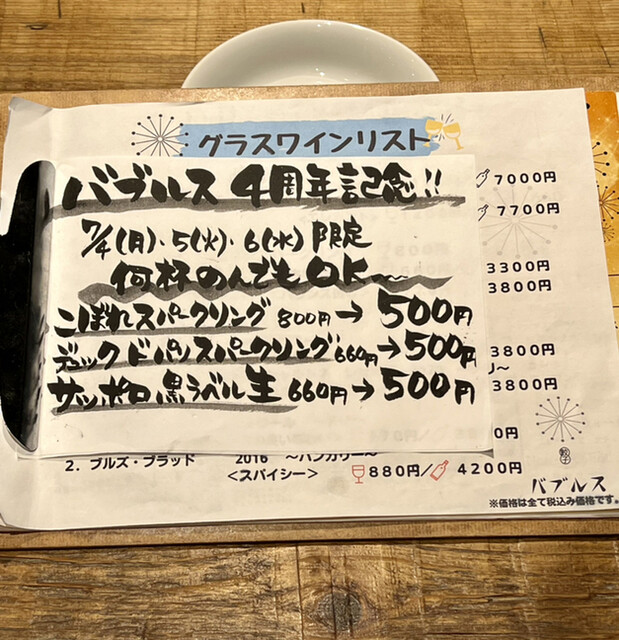 グラスワインリスト
バブルス 4周年記念!!
7/4(月)・5(火)・6(水) 限定
何杯のんでもOK〜
こぼれスパークリング 800円→500円
デュック ドパリスパークリング 660円→500円
サッポロ黒ラベル生 660円→500円
7000円
7700円
3300円
3800円
3800円
3800円
0円
2. ブルズ・ブラッド 2016 〜ハンガリー〜
<スパイシー> 880円/ 4200円
餃子
バブルス
※価格は全て税込み価格です。